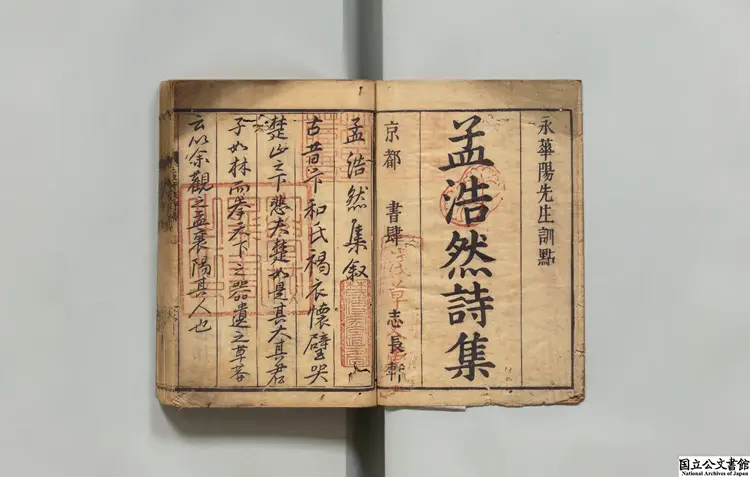 永華陽先生訓點
孟浩然詩集
京都 書肆 志長軒
孟浩然集叙
古昔卞和氏褐衣懷璧哭
楚山之下悲夫楚如是其大其君
子如林而拳天下之器遺之草莽
云以余觀之孟襄陽其人也
国立公文書館
National Archives of Japan